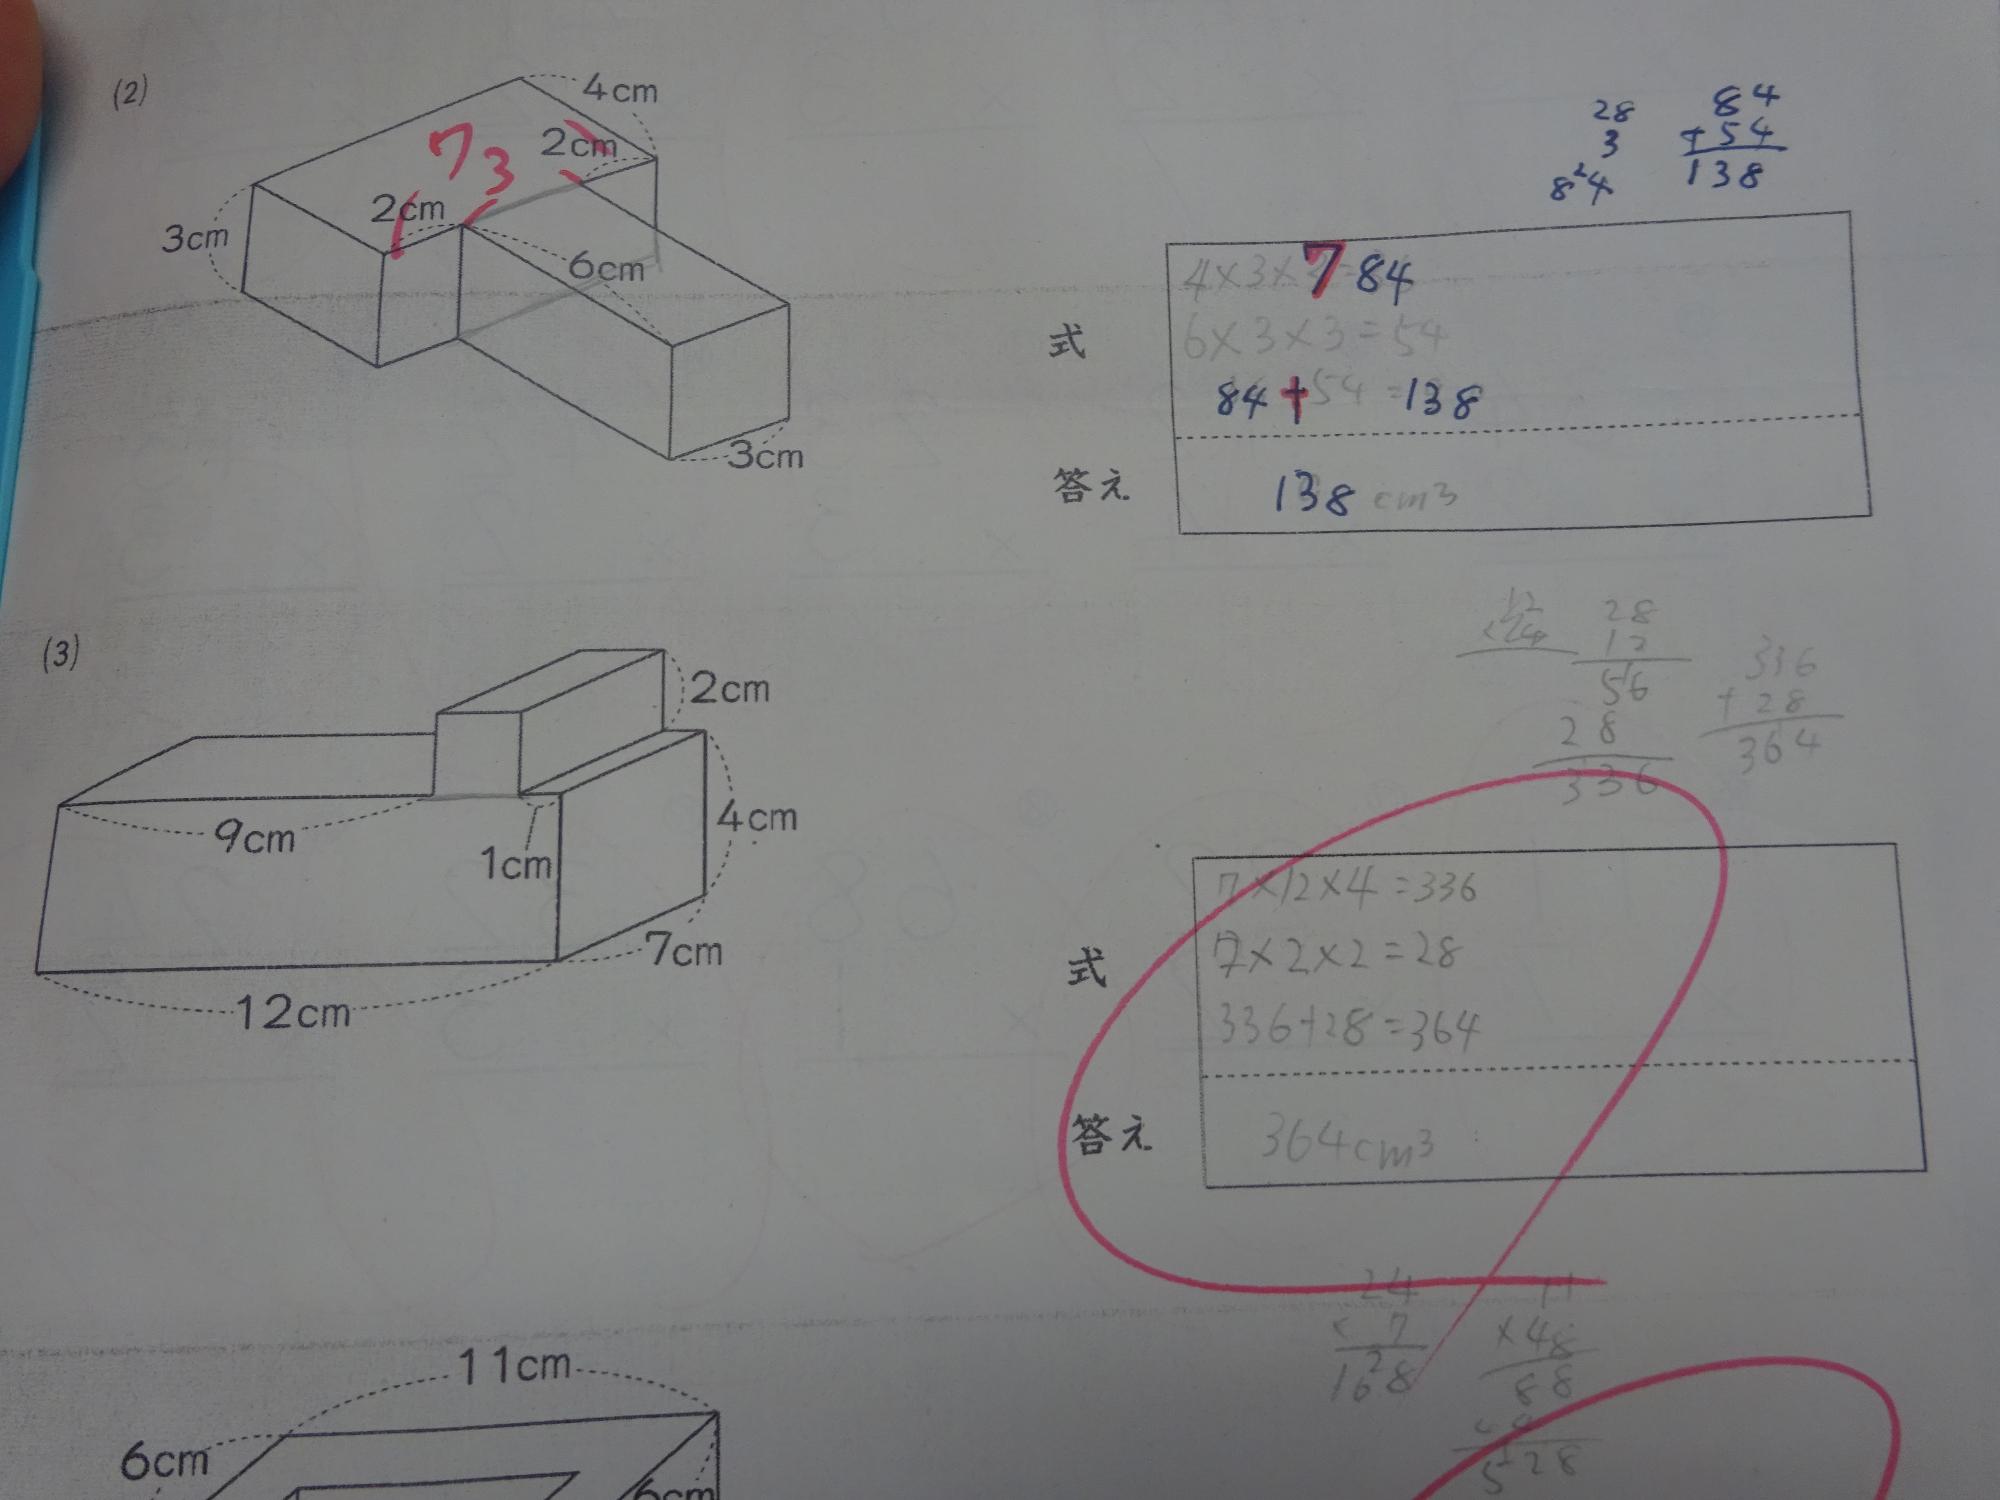 (2)
4cm
2cm
7
3
2cm
3cm
6cm
3cm
28
3
8²4
84
+54
138
式
4×3×7 84
6×3×3=54
84+54=138
答え
138 cm3
(3)
2cm
9cm
1cm
4cm
7cm
12cm
28
12
56
28
336
336
+28
364
式
7×12×4=336
7×2×2=28
336+28=364
答え
364cm3
24
× 7
16²8
11
×48
88
528
11cm
6cm
6cm